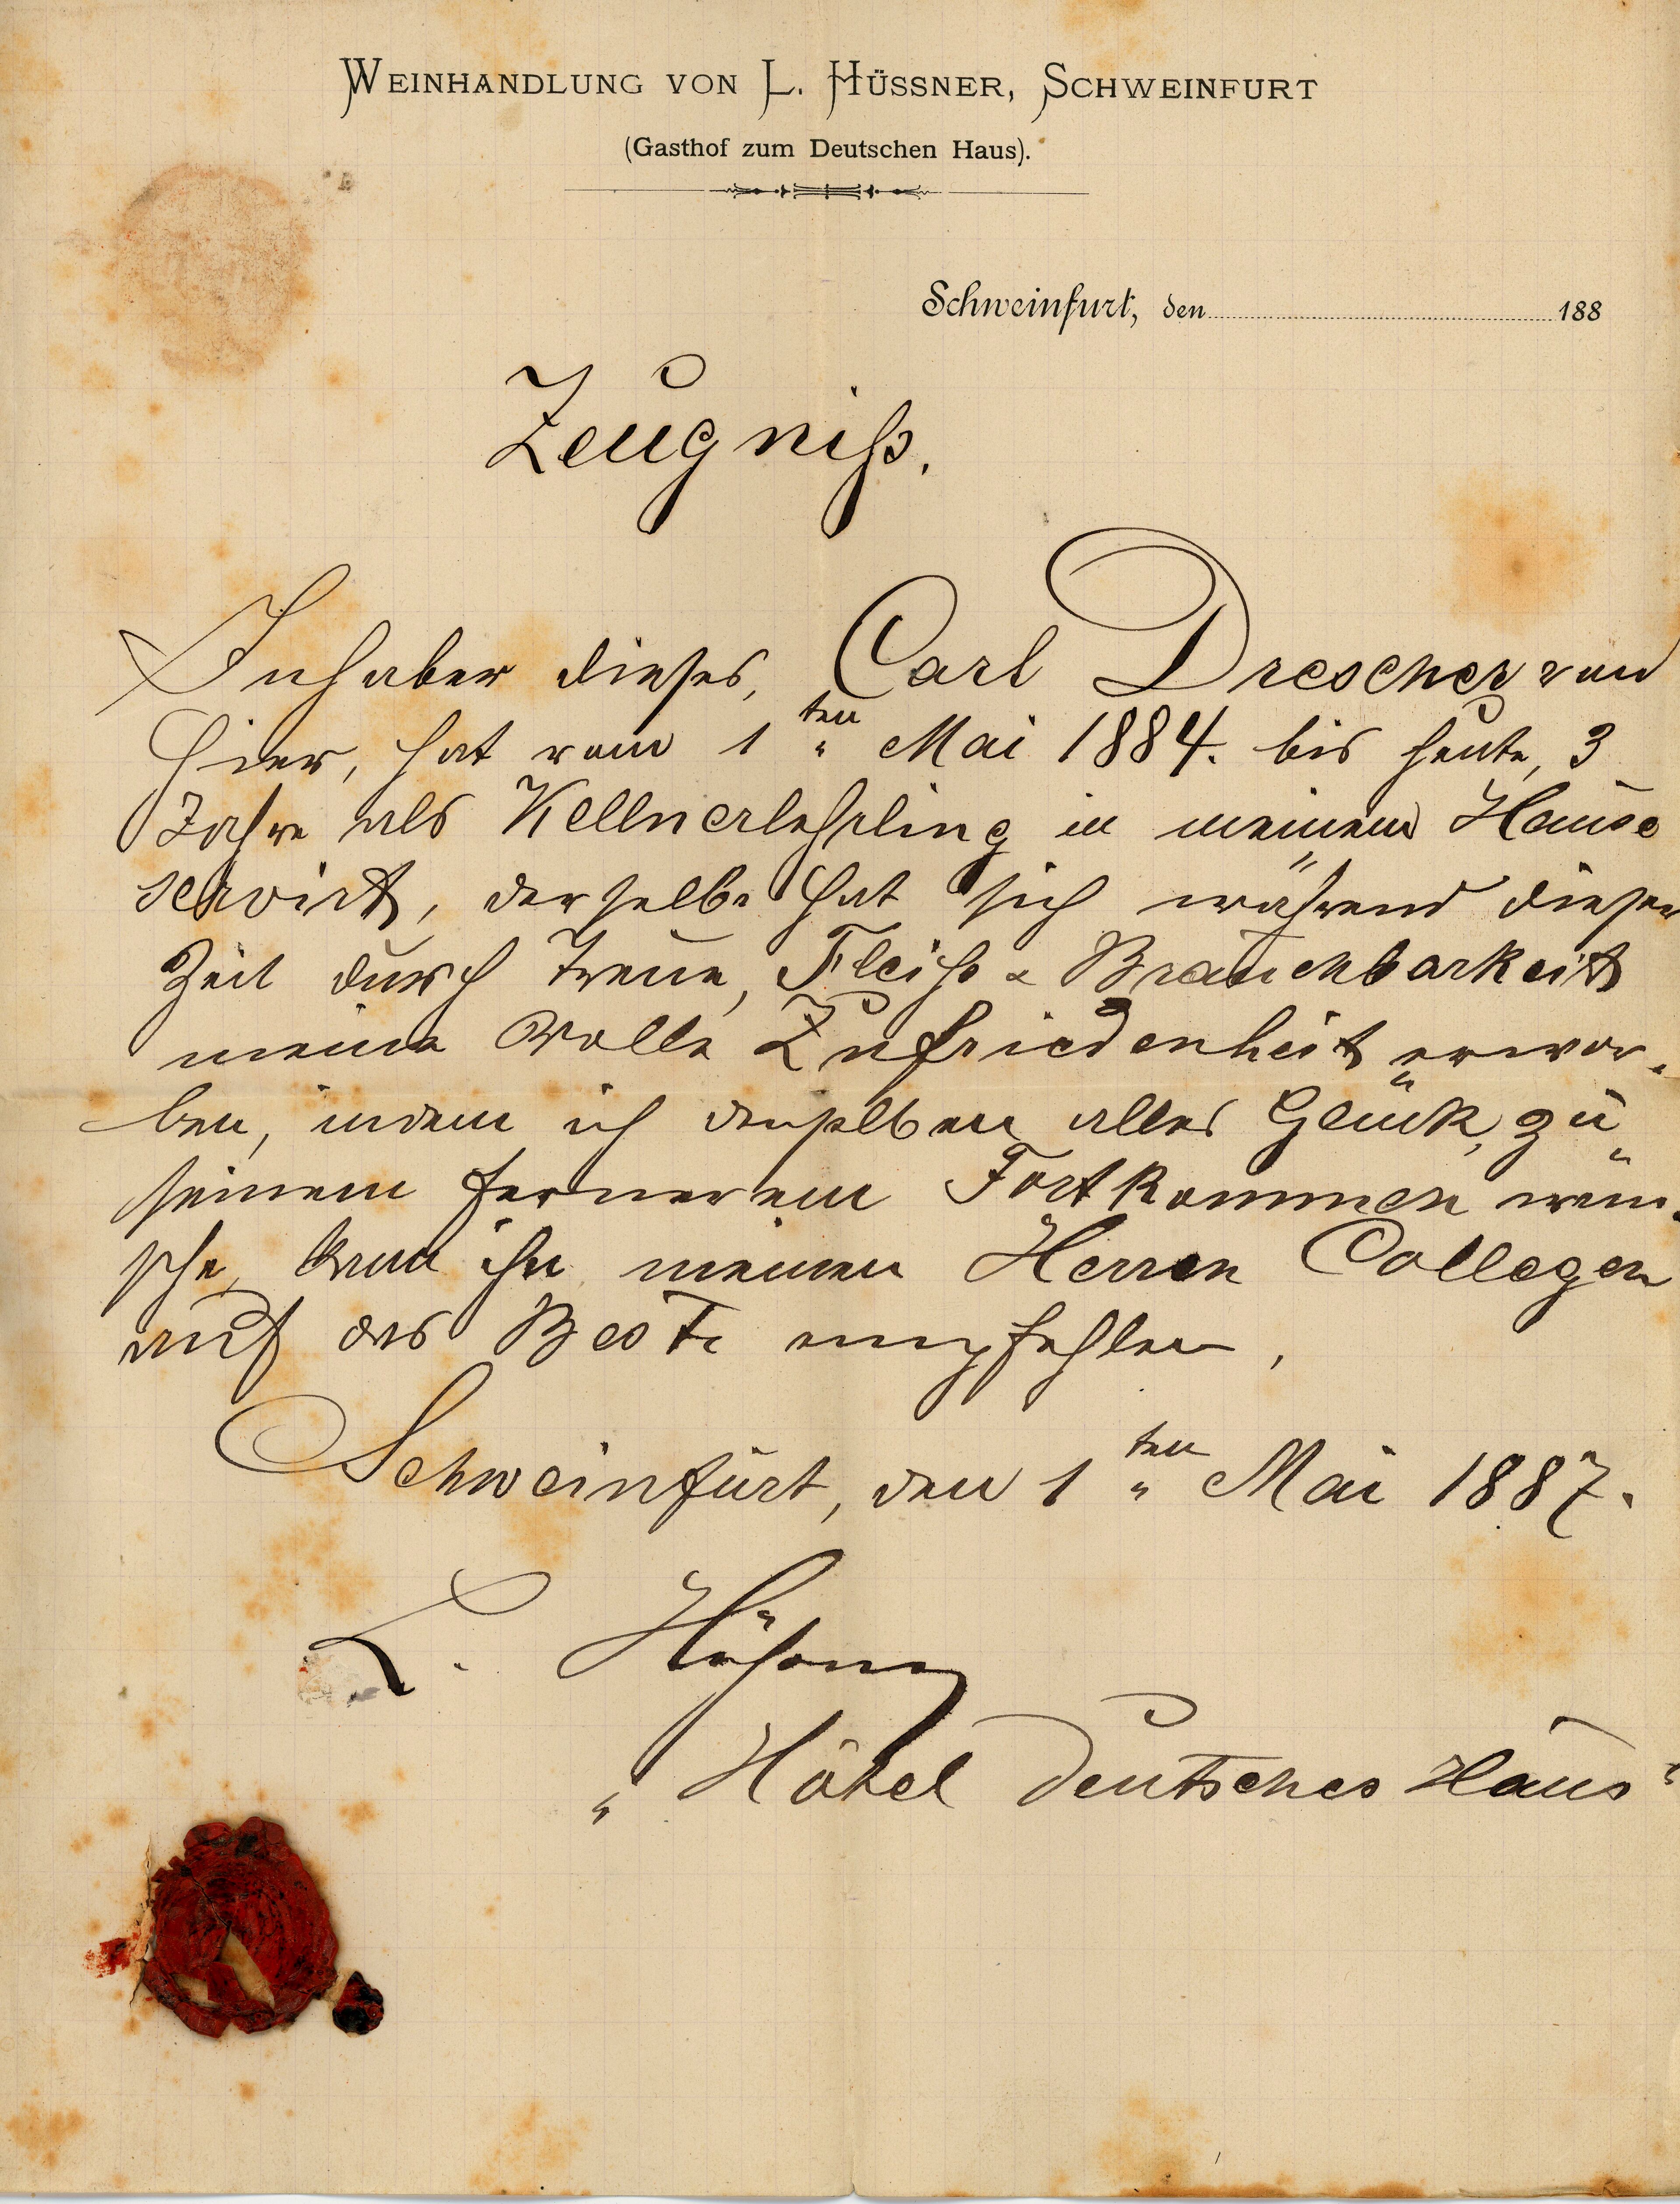 WEINHANDLUNG VON L. HÜSSNER, SCHWEINFURT
(Gasthof zum Deutschen Haus).
Schweinfurt, den 188
Zeugniß.
Inhaber dieses, Carl Drescher von
hier, hat vom 1ten Mai 1884. bis heute, 3
Jahre als Kellnerlehrling in meinem Hause
servirt, derselbe hat sich während dieser
Zeit durch Treue, Fleiß & Brauchbarkeit
meine volle Zufriedenheit erwor-
ben, indem ich demselben alles Glück, zu
seinem fernerem Fortkommen wün-
sche, kann ihn meinen Herren Collegen
auf das Beste empfehlen,
Schweinfurt, den 1ten Mai 1887.
L. Hüßner
"Hôtel Deutsches Haus"